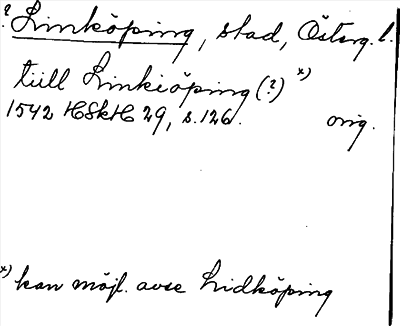 ? Linköping, stad, Österg. l.
tiill Linkiöping (?) x)
1542 HSkH 29, s. 126. orig.
x) kan möjl. avse Lidköping